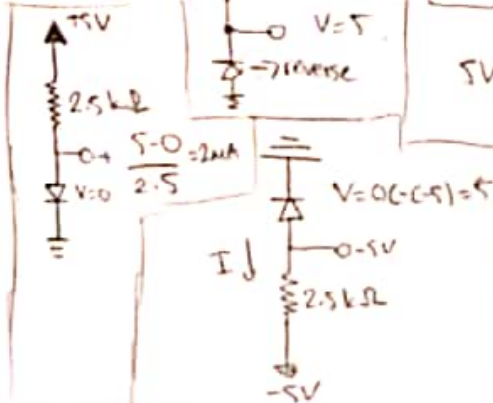 +5V
2.5kΩ
5-0
2.5
=2mA
V=0
V=5
→reverse
5V
V=0(-(-5)=5
I
-5V
2.5kΩ
-5V